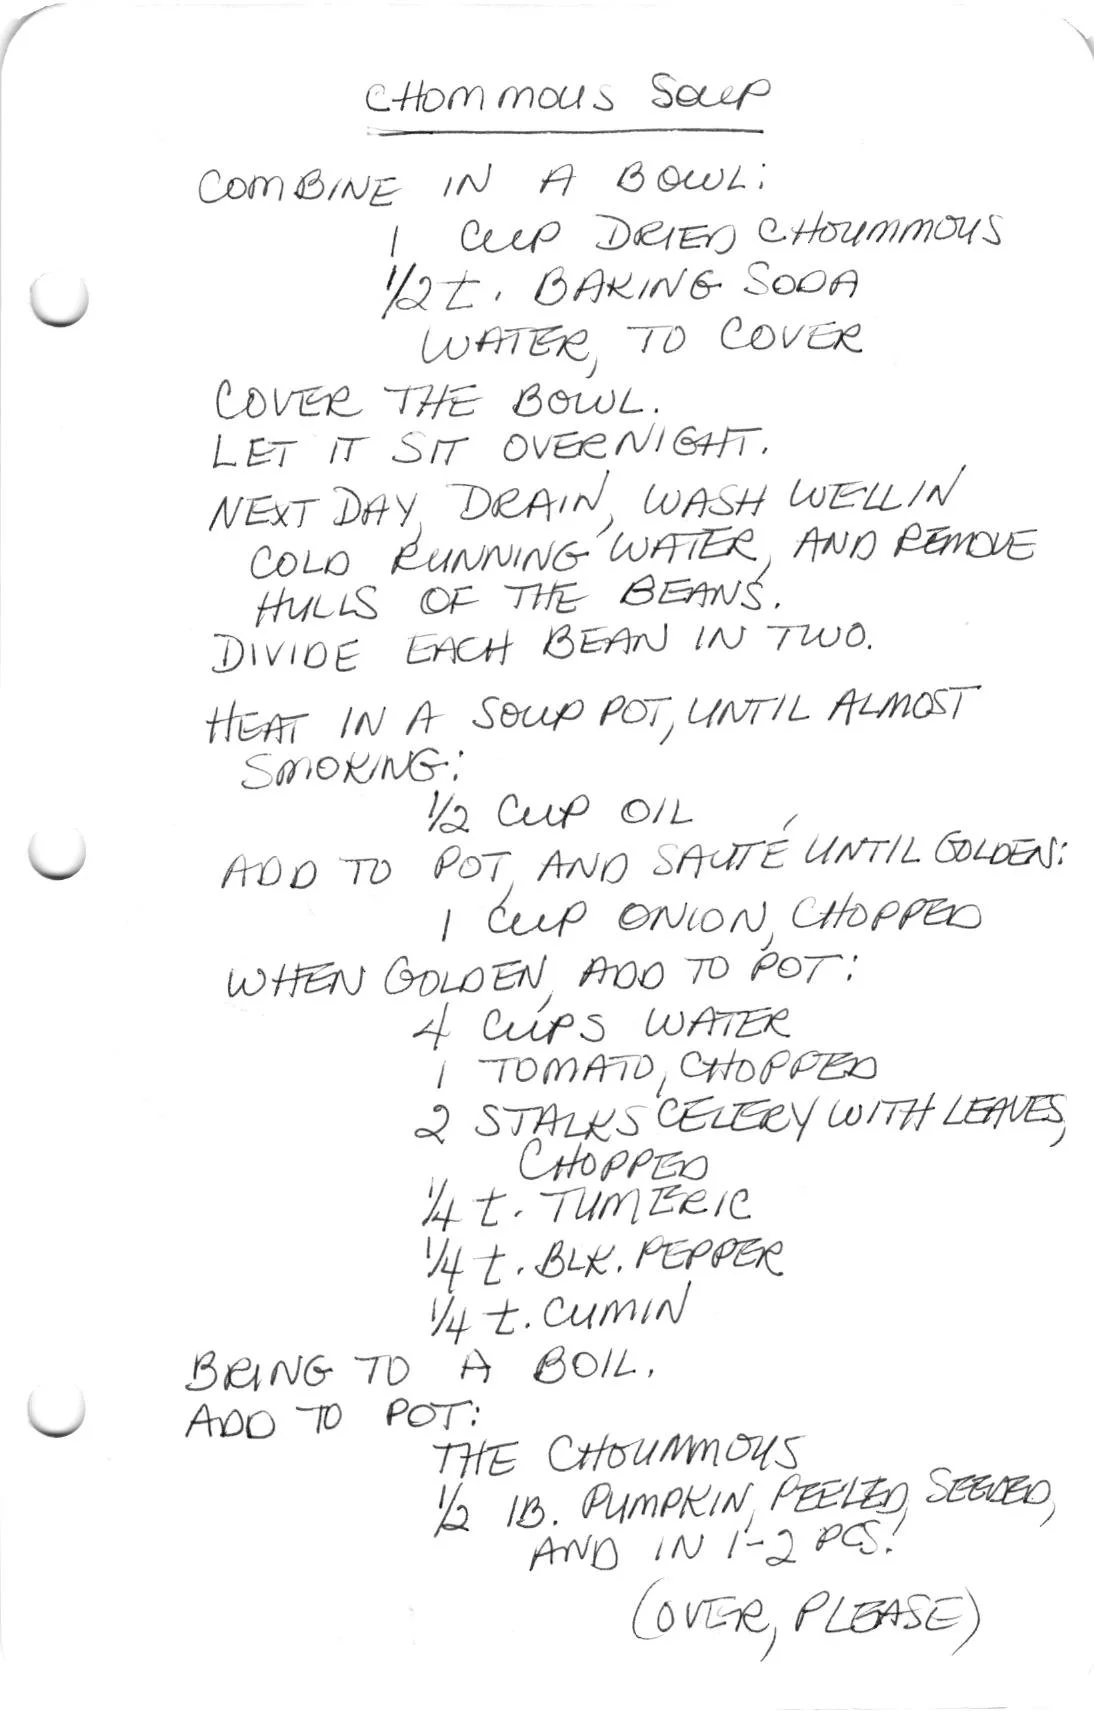 CHOMMOUS SOUP
COMBINE IN A BOWL:
1 CUP DRIED CHOUMMOUS
1/2 t. BAKING SODA
WATER, TO COVER
COVER THE BOWL.
LET IT SIT OVERNIGHT.
NEXT DAY, DRAIN, WASH WELL IN
COLD RUNNING WATER, AND REMOVE
HULLS OF THE BEANS.
DIVIDE EACH BEAN IN TWO.
HEAT IN A SOUP POT, UNTIL ALMOST
SMOKING:
1/2 CUP OIL
ADD TO POT, AND SAUTÉ UNTIL GOLDEN:
1 CUP ONION, CHOPPED
WHEN GOLDEN, ADD TO POT:
4 CUPS WATER
1 TOMATO, CHOPPED
2 STALKS CELERY WITH LEAVES,
CHOPPED
1/4 t. TUMERIC
1/4 t. BLK. PEPPER
1/4 t. CUMIN
BRING TO A BOIL.
ADD TO POT:
THE CHOUMMOUS
1/2 lB. PUMPKIN, PEELED, SEEDED,
AND IN 1-2 PCS.
(OVER, PLEASE)